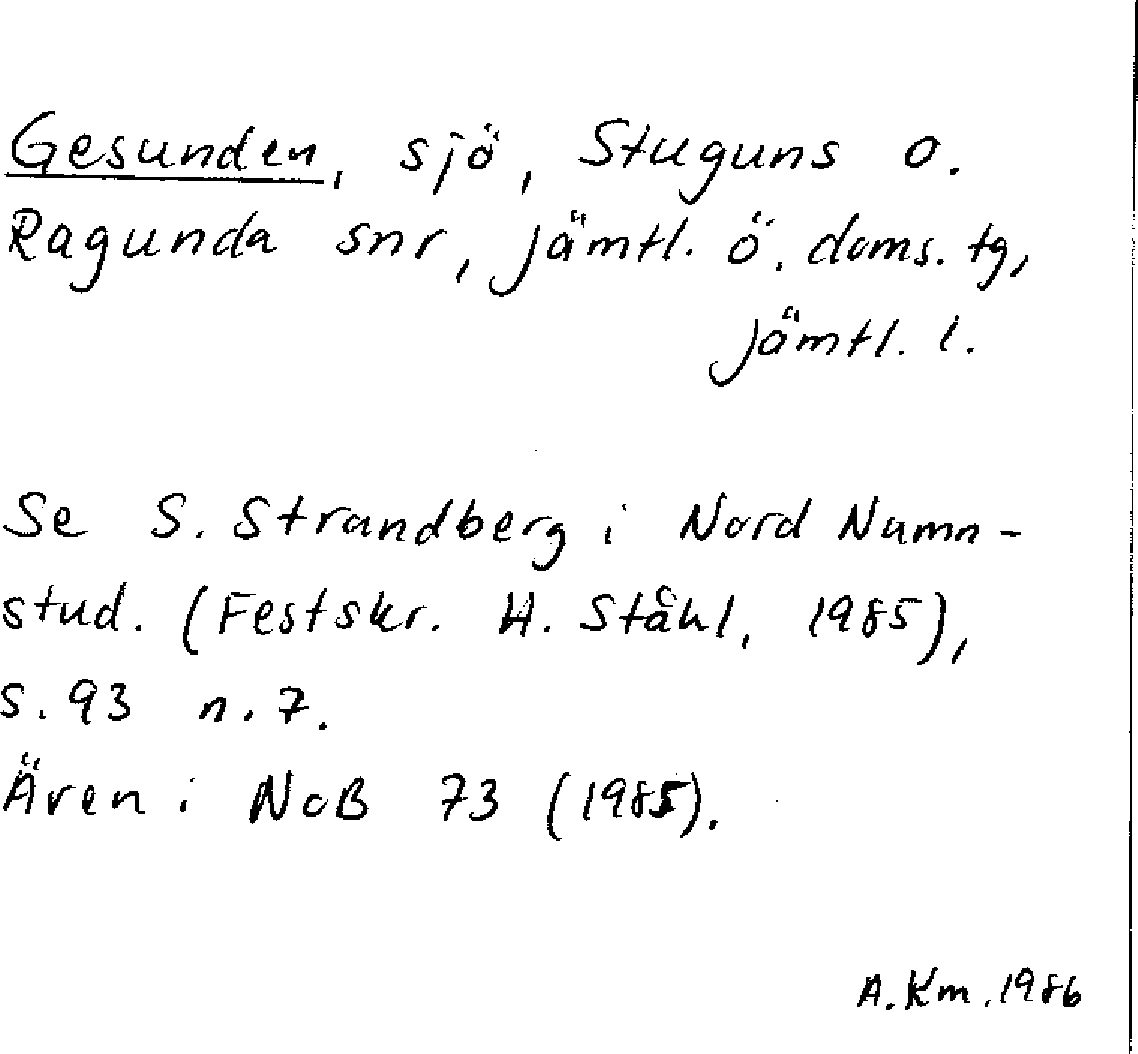 Gesunden, sjö, Stuguns o.
Ragunda snr, Jämtl. ö. doms. tg,
Jämtl. l.
Se S. Strandberg i Nord Namn-
stud. (Festskr. H. Ståhl, 1985),
s. 93 n. 7.
Även i NoB 73 (1985).
A. Km. 1986